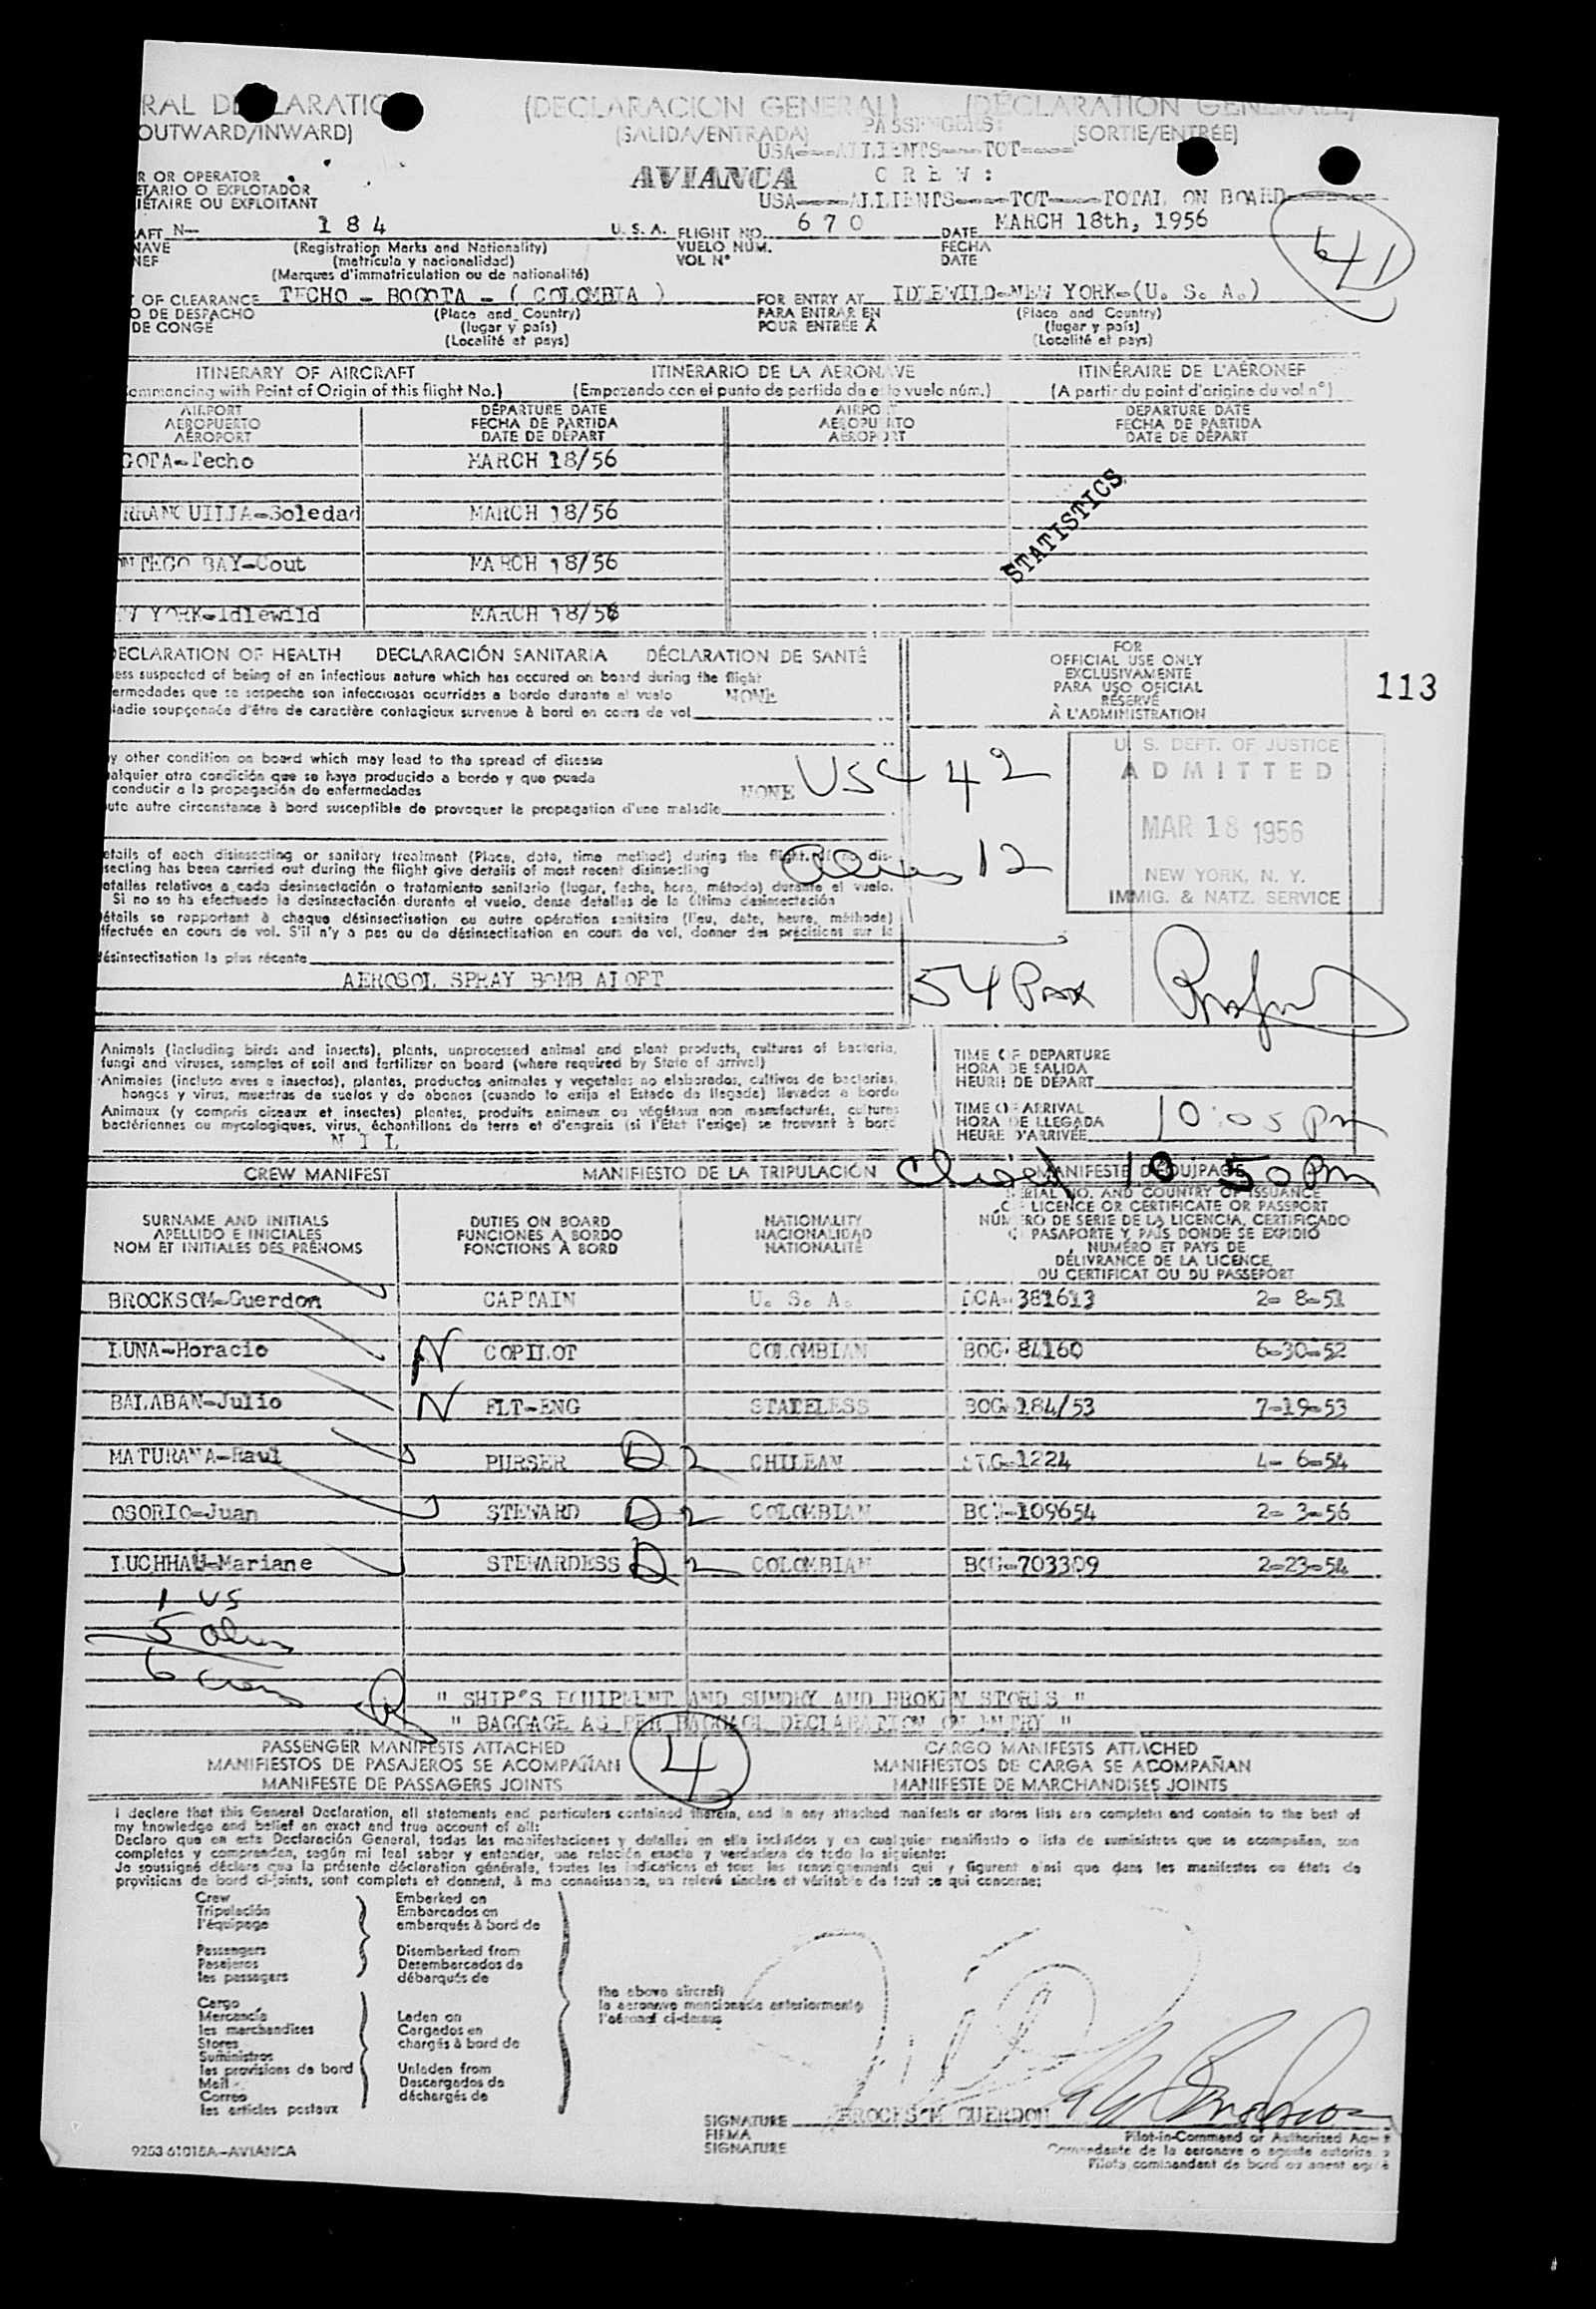 (DECLARACION GENERAL) (DÉCLARATION GENERALE)
OUTWARD/INWARD) (SALIDA/ENTRADA) PASSENGERS: (SORTIE/ENTRÉE)
USA----ALLIENTS----TOT----
R OR OPERATOR AVIANCA C R E W :
ETARIO O EXPLOTADOR
IÉTAIRE OU EXPLOITANT USA----ALLIENTS----TOT----TOTAL ON BOARD
AFT N-- 184 U. S. A. FLIGHT NO. 670 DATE MARCH 18th, 1956
NAVE (Registration Marks and Nationality) VUELO NÚM. FECHA
NEF (matrícula y nacionalidad) VOL N° DATE
(Marques d'immatriculation ou de nationalité)
OF CLEARANCE TECHO - BOGOTA - ( COLOMBIA ) FOR ENTRY AT IDLEWILD-NEW YORK-(U. S. A.)
O DE DESPACHO (Place and Country) PARA ENTRAR EN (Place and Country)
DE CONGÉ (lugar y país) POUR ENTRÉE A (lugar y país)
(Localité et pays) (Localité et pays)
ITINERARY OF AIRCRAFT ITINERARIO DE LA AERONAVE ITINÉRAIRE DE L'AÉRONEF
ommencing with Point of Origin of this flight No.) (Empezando con el punto de partida de este vuelo núm.) (A partir du point d'origine du vol n°)
AIRPORT DEPARTURE DATE AIRPORT DEPARTURE DATE
AEROPUERTO FECHA DE PARTIDA AEROPUERTO FECHA DE PARTIDA
AÉROPORT DATE DE DÉPART AÉROPORT DATE DE DÉPART
GOTA-Techo MARCH 18/56
RRANQUILLA-Soledad MARCH 18/56
STATISTICS
ONTEGO BAY-Cout MARCH 18/56
W YORK-Idlewild MARCH 18/56
DECLARATION OF HEALTH DECLARACIÓN SANITARIA DÉCLARATION DE SANTÉ
FOR
OFFICIAL USE ONLY
EXCLUSIVAMENTE
PARA USO OFICIAL
RÉSERVÉ
À L'ADMINISTRATION
113
ess suspected of being of an infectious nature which has occured on board during the flight
ermedades que se sospecha son infecciosas ocurridas a bordo durante el vuelo NONE
ladie soupçonnée d'être de caractère contagieux survenue à bord en cours de vol
y other condition on board which may lead to the spread of disease
alquier otra condición que se haya producido a bordo y que pueda
conducir a la propagación de enfermedades NONE
ute autre circonstance à bord susceptible de provoquer la propagation d'une maladie
USC 42
U. S. DEPT. OF JUSTICE
ADMITTED
MAR 18 1956
NEW YORK, N. Y.
IMMIG. & NATZ. SERVICE
etails of each disinsecting or sanitary treatment (Place, date, time method) during the flight. If no dis-
secting has been carried out during the flight give details of most recent disinsecting
etalles relativos a cada desinsectación o tratamiento sanitario (lugar, fecha, hora, método) durante el vuelo.
Si no se ha efectuado la desinsectación durante el vuelo, dense detalles de la última desinsectación
étails se rapportant à chaque désinsectisation ou autre opération sanitaire (lieu, date, heure, méthode)
ffectuée en cours de vol. S'il n'y a pas eu de désinsectisation en cours de vol, donner des précisions sur la
désinsectisation la plus récente
Aliens 12
AEROSOL SPRAY BOMB ALOFT
54 Pax
Animals (including birds and insects), plants, unprocessed animal and plant products, cultures of bacteria,
fungi and viruses, samples of soil and fertilizer on board (where required by State of arrival)
Animales (incluso aves e insectos), plantas, productos animales y vegetales no elaborados, cultivos de bacterias,
hongos y virus, muestras de suelos y de abonos (cuando lo exija el Estado de llegada) llevados a bordo
Animaux (y compris oiseaux et insectes) plantes, produits animaux ou végétaux non manufacturés, cultures
bactériennes ou mycologiques, virus, échantillons de terre et d'engrais (si l'État l'exige) se trouvant à bord
N I L
TIME OF DEPARTURE
HORA DE SALIDA
HEURE DE DÉPART
TIME OF ARRIVAL
HORA DE LLEGADA 10:05 pm
HEURE D'ARRIVÉE
CREW MANIFEST MANIFIESTO DE LA TRIPULACIÓN MANIFESTE D'ÉQUIPAGE
Closed 10 50 Pm
SURNAME AND INITIALS
APELLIDO E INICIALES
NOM ET INITIALES DES PRÉNOMS
DUTIES ON BOARD
FUNCIONES A BORDO
FONCTIONS À BORD
NATIONALITY
NACIONALIDAD
NATIONALITÉ
SERIAL NO. AND COUNTRY OF ISSUANCE
OF LICENCE OR CERTIFICATE OR PASSPORT
NÚMERO DE SERIE DE LA LICENCIA, CERTIFICADO
O PASAPORTE Y PAÍS DONDE SE EXPIDIÓ
NUMÉRO ET PAYS DE
DÉLIVRANCE DE LA LICENCE,
DU CERTIFICAT OU DU PASSEPORT
BROCKSOM-Guerdon CAPTAIN U. S. A. DCA-381613 2- 8-51
LUNA-Horacio N COPILOT COLOMBIAN BOG-84160 6-30-52
BALABAN-Julio N FLT-ENG STATELESS BOG-184/53 7-19-53
MATURANA-Raul PURSER D 2 CHILEAN STG-1224 4- 6-54
OSORIO-Juan STEWARD D 2 COLOMBIAN BOG-109654 2- 3-56
LUCHHAU-Mariane STEWARDESS D 2 COLOMBIAN BOG-703309 2-23-54
1 US
5 alien
6 crew
" SHIP'S EQUIPMENT AND SUNDRY AND BROKEN STORES "
" BAGGAGE AS PER BAGGAGE DECLARATION ON ENTRY "
PASSENGER MANIFESTS ATTACHED CARGO MANIFESTS ATTACHED
MANIFIESTOS DE PASAJEROS SE ACOMPAÑAN 4 MANIFIESTOS DE CARGA SE ACOMPAÑAN
MANIFESTE DE PASSAGERS JOINTS MANIFESTE DE MARCHANDISES JOINTS
I declare that this General Declaration, all statements and particulars contained therein, and in any attached manifests or stores lists are complete and contain to the best of
my knowledge and belief an exact and true account of all:
Declaro que en esta Declaración General, todas las manifestaciones y detalles en ella incluídos y en cualquier manifiesto o lista de suministros que se acompañen, son
completos y comprenden, según mi leal saber y entender, una relación exacta y verdadera de todo lo siguiente:
Je soussigné déclare que la présente déclaration générale, toutes les indications et tous les renseignements qui y figurent ainsi que dans les manifestes ou états de
provisions de bord ci-joints, sont complets et donnent, à ma connaissance, un relevé sincère et véritable de tout ce qui concerne:
Crew Embarked on
Tripulación Embarcados en
l'équipage embarqués à bord de
Passengers Disembarked from
Pasajeros Desembarcados de
les passagers débarqués de
the above aircraft
la aeronave mencionada anteriormente
l'aéronef ci-dessus
Cargo
Mercancía Laden on
les marchandises Cargados en
Stores chargés à bord de
Suministros
les provisions de bord Unladen from
Mail Descargados de
Correo déchargés de
les articles postaux
SIGNATURE BROCKSOM GUERDON
FIRMA Pilot-in-Command or Authorized Agent
SIGNATURE Comandante de la aeronave o agente autorizado
Pilote commandant de bord ou agent agréé
9253 61015A-AVIANCA